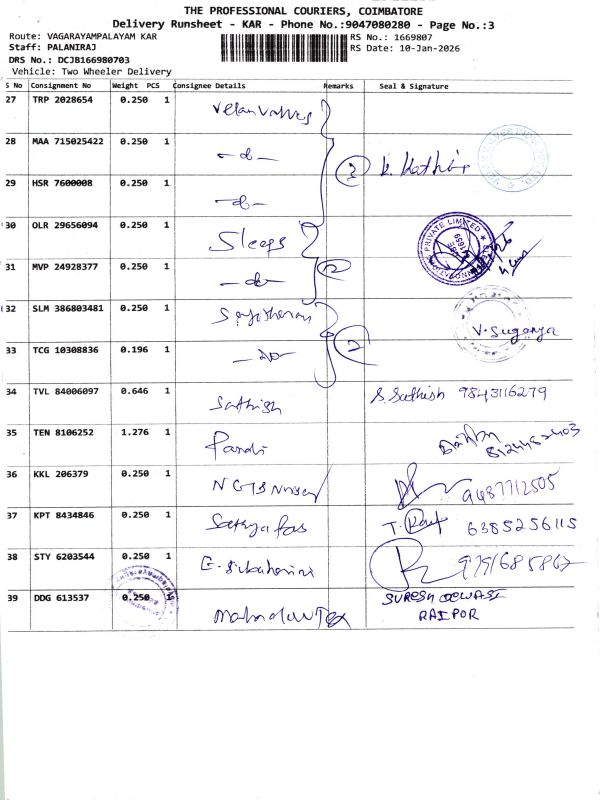 THE PROFESSIONAL COURIERS, COIMBATORE
Delivery Runsheet - KAR - Phone No.:9047080280 - Page No.:3
Route: VAGARAYAMPALAYAM KAR
RS No.: 1669807
Staff: PALANIRAJ
RS Date: 10-Jan-2026
DRS No.: DCJB166980703
Vehicle: Two Wheeler Delivery
S No Consignment No Weight PCS Consignee Details Remarks Seal & Signature
27 TRP 2028654 0.250 1 Velan Valves
28 MAA 715025422 0.250 1 -do- 3 K. Kathir
29 HSR 7600008 0.250 1 -do-
30 OLR 29656094 0.250 1 Sleeps PRIVATE LIMITED
31 MVP 24928377 0.250 1 -do- 2
32 SLM 386803481 0.250 1 V. Suganya
33 TCG 10308836 0.196 1 -do- 2
34 TVL 84006097 0.646 1 Sathish S. Sathish 9843116279
35 TEN 8106252 1.276 1 Pandi 8124482403
36 KKL 206379 0.250 1 9487712505
37 KPT 8434846 0.250 1 T. 6385256115
38 STY 6203544 0.250 1 9791685862
39 DDG 613537 0.250 1 SURESH DEWASI
RAIPOR